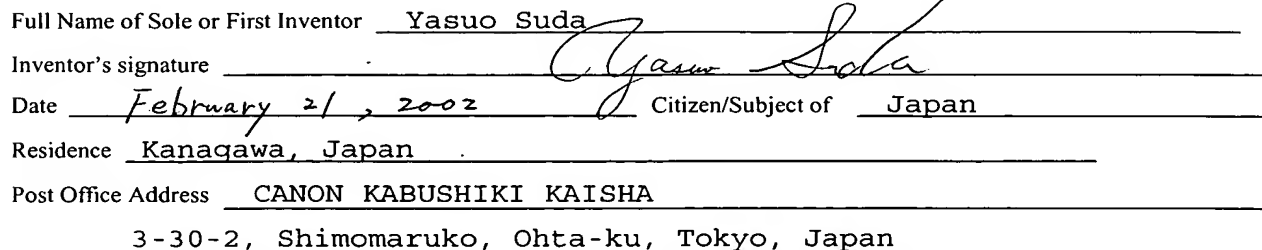 Full Name of Sole or First Inventor Yasuo Suda
Inventor's signature Yasuo Suda
Date February 21, 2002 Citizen/Subject of Japan
Residence Kanagawa, Japan
Post Office Address CANON KABUSHIKI KAISHA
3-30-2, Shimomaruko, Ohta-ku, Tokyo, Japan